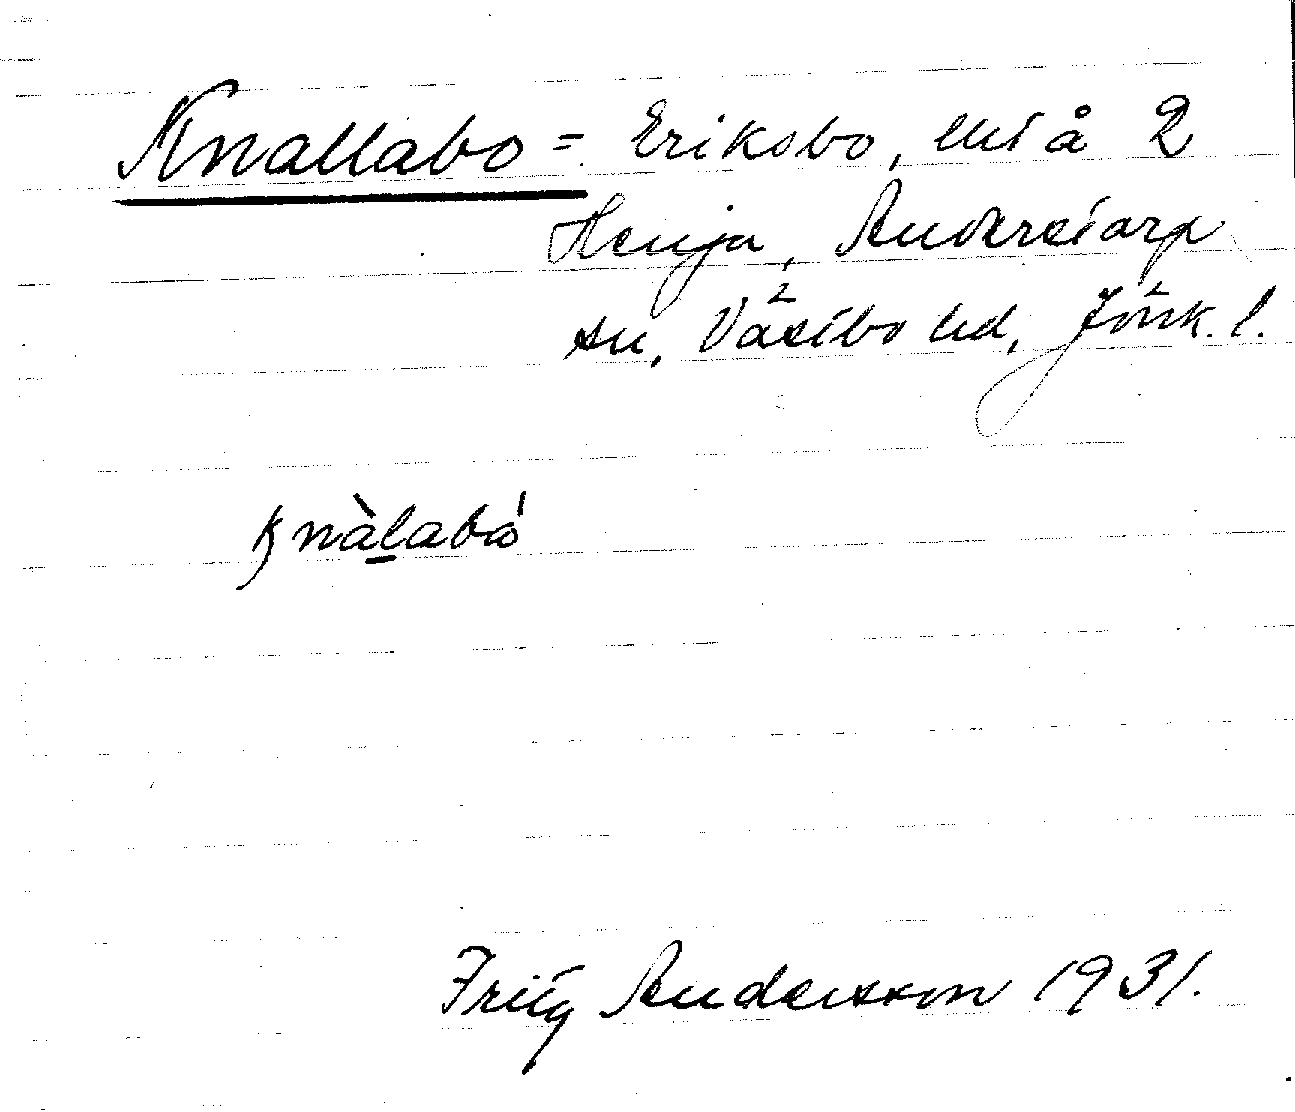 Knallabo = Eriksbo, lht å 2
Henja, Anderstorp
sn, Västbo hd, Jönk. l.
knàlabó
Fritz Andersson 1931.